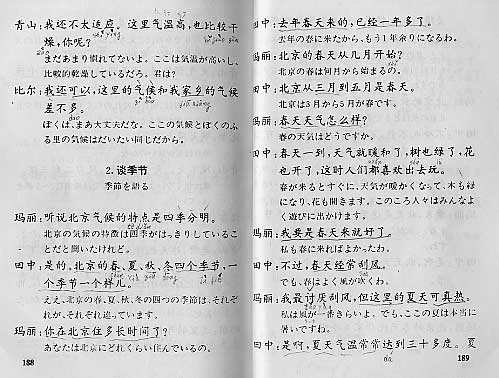 青山：我还不太适应。这里气温高，也比较干
燥，你呢？
まだあまり慣れてないよ。ここは気温が高いし、
比較的乾燥しているだろ。君は？
比尔：我还可以，这里的气候和我家乡的气候
差不多。
ぼくは、まあ大丈夫だな。ここの気候とぼくのふ
る里の気候はだいたい同じだから。
2.谈季节
季節を語る
玛丽：听说北京气候的特点是四季分明。
北京の気候の特徴は四季がはっきりしているこ
とだと聞いたけれど。
田中：是的，北京的春、夏、秋、冬四个季节，一
个季节一个样儿。
ええ、北京の春、夏、秋、冬の四つの季節は、それぞ
れが、それぞれ違っています。
玛丽：你在北京住多长时间了？
あなたは北京にどれくらい住んでいるの。
188
田中：去年春天来的，已经一年多了。
去年の春に来たから、もう1年余りになるわ。
玛丽：北京的春天从几月开始？
北京の春は何月から始まるの。
田中：北京从三月到五月是春天。
北京は3月から5月が春です。
玛丽：春天天气怎么样？
春の天気はどうですか。
田中：春天一到，天气就暖和了，树也绿了，花
也开了，这时人们都喜欢出去玩。
春が来るとすぐに、天気が暖かくなって、木も緑
になり、花も開きます。このころ人々はみんなよ
く遊びに出かけます。
玛丽：我要是春天来就好了。
私も春に来ればよかったわ。
田中：不过，春天经常刮风。
でも、春はよく風が吹くわ。
玛丽：我最讨厌刮风，但这里的夏天可真热。
私は風が一番きらいよ、でも、ここの夏は本当に
暑いですね。
田中：是啊，夏天气温常常达到三十多度。夏
dá
189